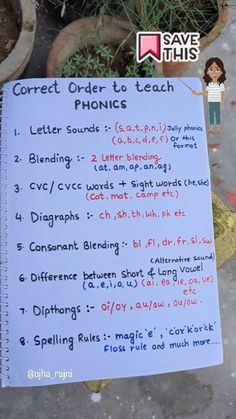 SAVE
THIS
Correct Order to teach
PHONICS
1. Letter Sounds :- (s,a,t,p,n,i) Jolly phonics
(a,b,c,d,e,f) Or this
format
2. Blending :- 2 letter blending
(at, am, ap, an, ag)
3. CVC/CVCC words + Sight words (he, she)
(Cat, mat, camp etc)
4. Diagraphs :- ch, sh, th, wh, ph etc
5. Consonant Blending :- bl, fl, dr, fr, sl, sw
(Alternative sound)
6. Difference between Short & Long Vowel
(a, e, i, o, u) (ai, ea, ie, oa, ue)
etc.
7. Dipthongs :- oi/oy, au/aw, ou/ow.
8. Spelling Rules :- magic 'e', 'c' or 'k' or 'ck'
Floss rule and much more....
@ojha_rajni